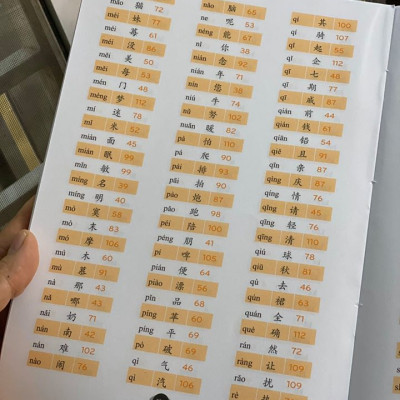 māo 猫 72
mèi 妹 77
méi 眉 61
méi 没 86
měi 美 50
měi 每 53
mén 门 48
mèng 梦 112
mí 迷 78
mǐ 米 52
miàn 面 45
mián 眠 99
mǐn 敏 99
míng 名 39
míng 明 40
mò 寞 58
mò 末 83
mó 摩 106
mù 木 60
mù 慕 91
nà 那 43
nǎ 哪 43
nǎi 奶 71
nán 南 42
nán 难 102
nào 闹 76
nǎo 脑 65
ne 呢 53
néng 能 67
nǐ 你 38
niàn 念 92
nián 年 71
nín 您 38
niú 牛 74
nǔ 努 102
nuǎn 暖 82
pà 怕 110
pá 爬 90
pái 排 93
pāi 拍 90
pào 炮 87
pǎo 跑 98
péi 陪 100
péng 朋 41
pí 啤 105
pián 便 64
piào 漂 56
pǐn 品 68
píng 苹 60
píng 平 69
pò 破 69
qì 气 46
qì 汽 106
qí 其 100
qí 骑 107
qǐ 起 55
qǐ 企 112
qī 七 48
qī 期 77
qī 戚 87
qián 前 44
qián 钱 61
qiān 铅 54
qiě 且 91
qīn 亲 87
qìng 庆 87
qíng 情 76
qǐng 请 45
qīng 轻 76
qīng 清 110
qiú 球 78
qiū 秋 81
qù 去 46
qún 裙 63
quán 全 71
què 确 112
rán 然 72
ràng 让 109
rǎo 扰 109
rè 热